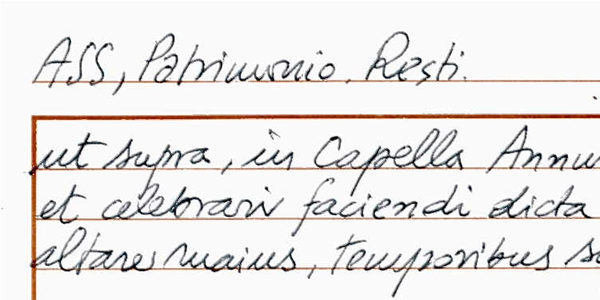 ASS, Patrimonio Resti.
ut supra, in Capella
et celebrari faciendi dicta
altare maius, temporibus